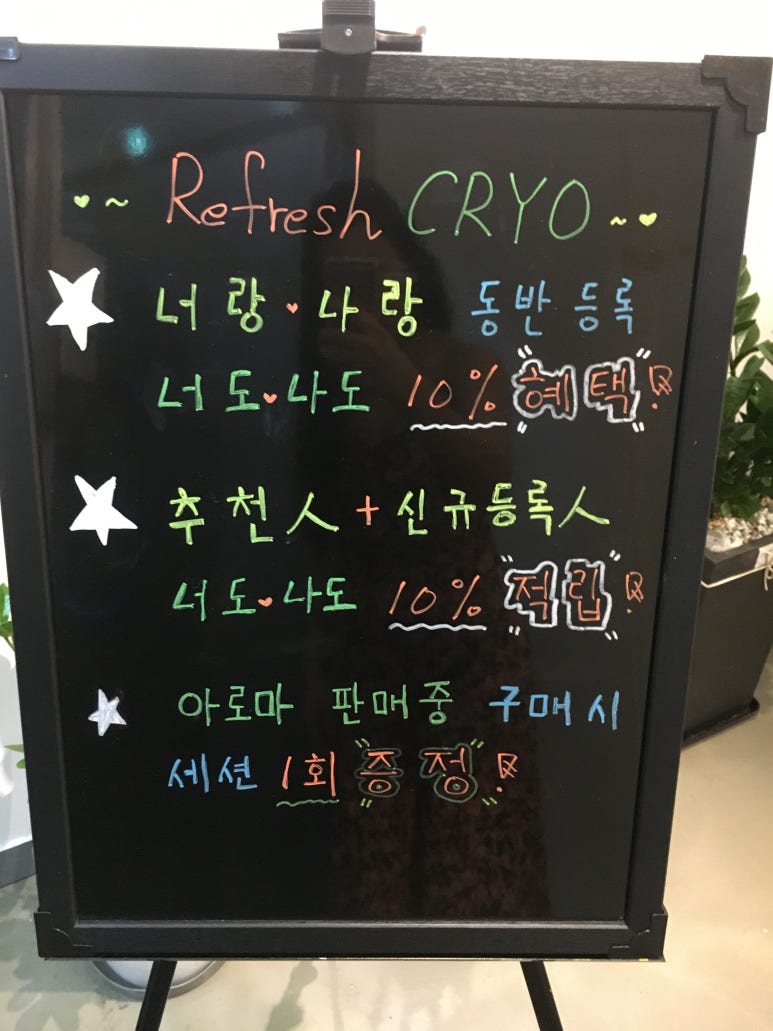 ♥~ Refresh CRYO ~♥
★ 너랑♥나랑 동반 등록
너도♥나도 10% "혜택"!
★ 추천人 + 신규등록人
너도♥나도 10% "적립"!
★ 아로마 판매중 구매시
세션 1회 "증정"!